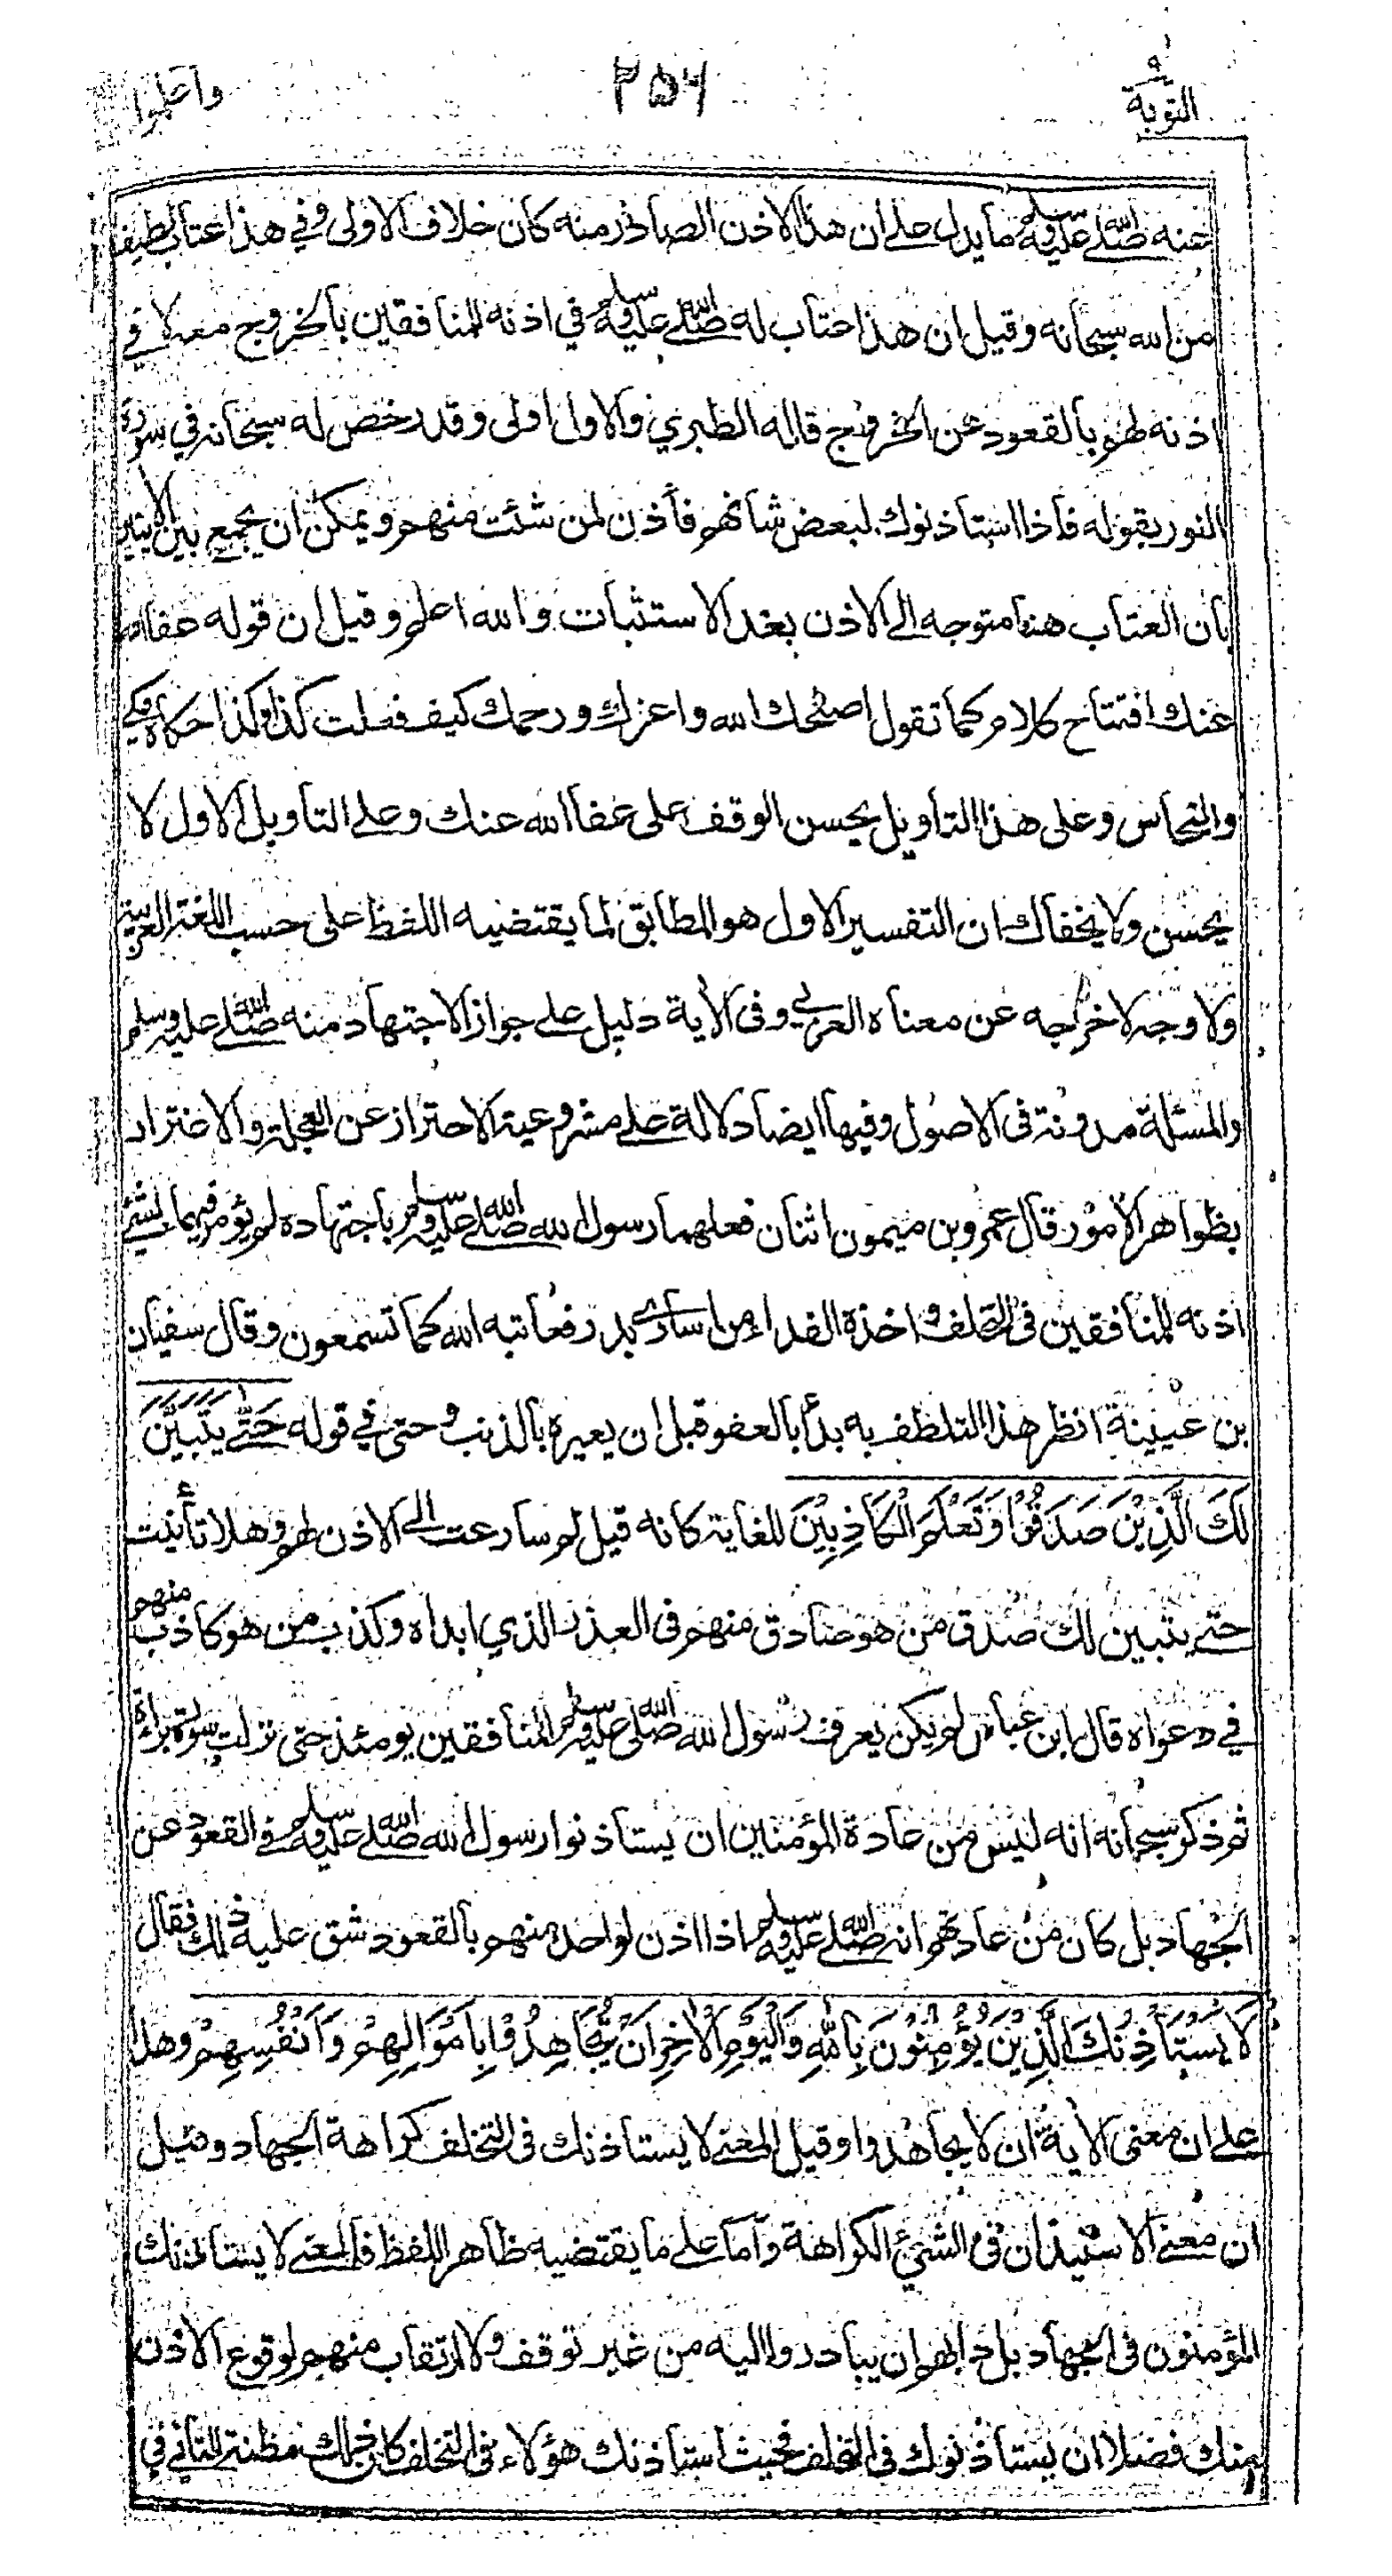 التوبة ٩
٢٥٦
واعلموا
عنه صلى الله عليه وسلم ما يدل على ان هذا الاذن الصادر منه كان خلاف الاولى وفي هذا عتاب لطيف
من الله سبحانه وقيل ان هذا عتاب له صلى الله عليه وسلم في اذنه للمنافقين بالخروج معه لا في
اذنه لهم بالقعود عن الخروج قاله الطبري والاول اولى وقد رخص له سبحانه في سورة
النور بقوله فاذا استاذنوك لبعض شانهم فأذن لمن شئت منهم ويمكن ان يجمع بين الآيتين
بان العتاب هنا متوجه الى الاذن بعد الاستثبات والله اعلم وقيل ان قوله عفا الله
عنك افتتاح كلام كما تقول اصلحك الله واعزك ورحمك كيف فعلت كذا وكذا حكاه مكي
والنحاس وعلى هذا التاويل يحسن الوقف على عفا الله عنك وعلى التاويل الاول لا
يحسن ولا يخفاك ان التفسير الاول هو المطابق لما يقتضيه اللفظ على حسب اللغة العربية
ولا وجه لاخراجه عن معناه العربي وفى الأية دليل على جواز الاجتهاد منه صلى الله عليه وسلم
والمسئلة مدونة فى الاصول وفيها ايضا دلالة على مشروعية الاحتراز عن العجلة والاغترار
بظواهر الامور قال عمرو بن ميمون اثنان فعلهما رسول الله صلى الله عليه وسلم باجتهاده لم يؤمر فيهما بشئ
اذنه للمنافقين فى التخلف واخذه الفداء من اسارى بدر فعاتبه الله كما تسمعون وقال سفيان
بن عيينة انظر هذا التلطف به بدأ بالعفو قبل ان يعيره بالذنب وحتى في قوله حَتّٰى يَتَبَيَّنَ
لَكَ الَّذِيْنَ صَدَقُوْا وَتَعْلَمَ الْكَاذِبِيْنَ للغاية كانه قيل لم سارعت الى الاذن لهم وهلا تأنيت
حتى يتبين لك صدق من هو صادق منهم فى العذر الذي ابداه وكذب من هو كاذب منهم
في دعواه قال ابن عباس لم يكن يعرف رسول الله صلى الله عليه وسلم المنافقين يومئذ حتى نزلت سورة براءة
ثم ذكر سبحانه انه ليس من عادة المؤمنين ان يستاذنوا رسول الله صلى الله عليه وسلم في القعود عن
الجهاد بل كان من عادتهم انه صلى الله عليه وسلم اذا اذن لواحد منهم بالقعود شق عليه ذلك فقال
لَا يَسْتَاْذِنُكَ الَّذِيْنَ يُؤْمِنُوْنَ بِاللّٰهِ وَالْيَوْمِ الْاٰخِرِ اَنْ يُّجَاهِدُوْا بِاَمْوَالِهِمْ وَاَنْفُسِهِمْ وهذا
على ان معنى الأية ان لا يجاهدوا وقيل المعنى لا يستاذنك فى التخلف كراهة الجهاد وقيل
ان معنى الاستيذان فى الشئ الكراهة واما على ما يقتضيه ظاهر اللفظ فالمعنى لا يستاذنك
المؤمنون فى الجهاد بل دابهم ان يبادروا اليه من غير توقف ولا ارتقاب منهم لوقوع الاذن
منك فضلا ان يستاذنوك فى التخلف فحيث استاذنك هؤلاء فى التخلف كان ذلك مظنة للتاني في